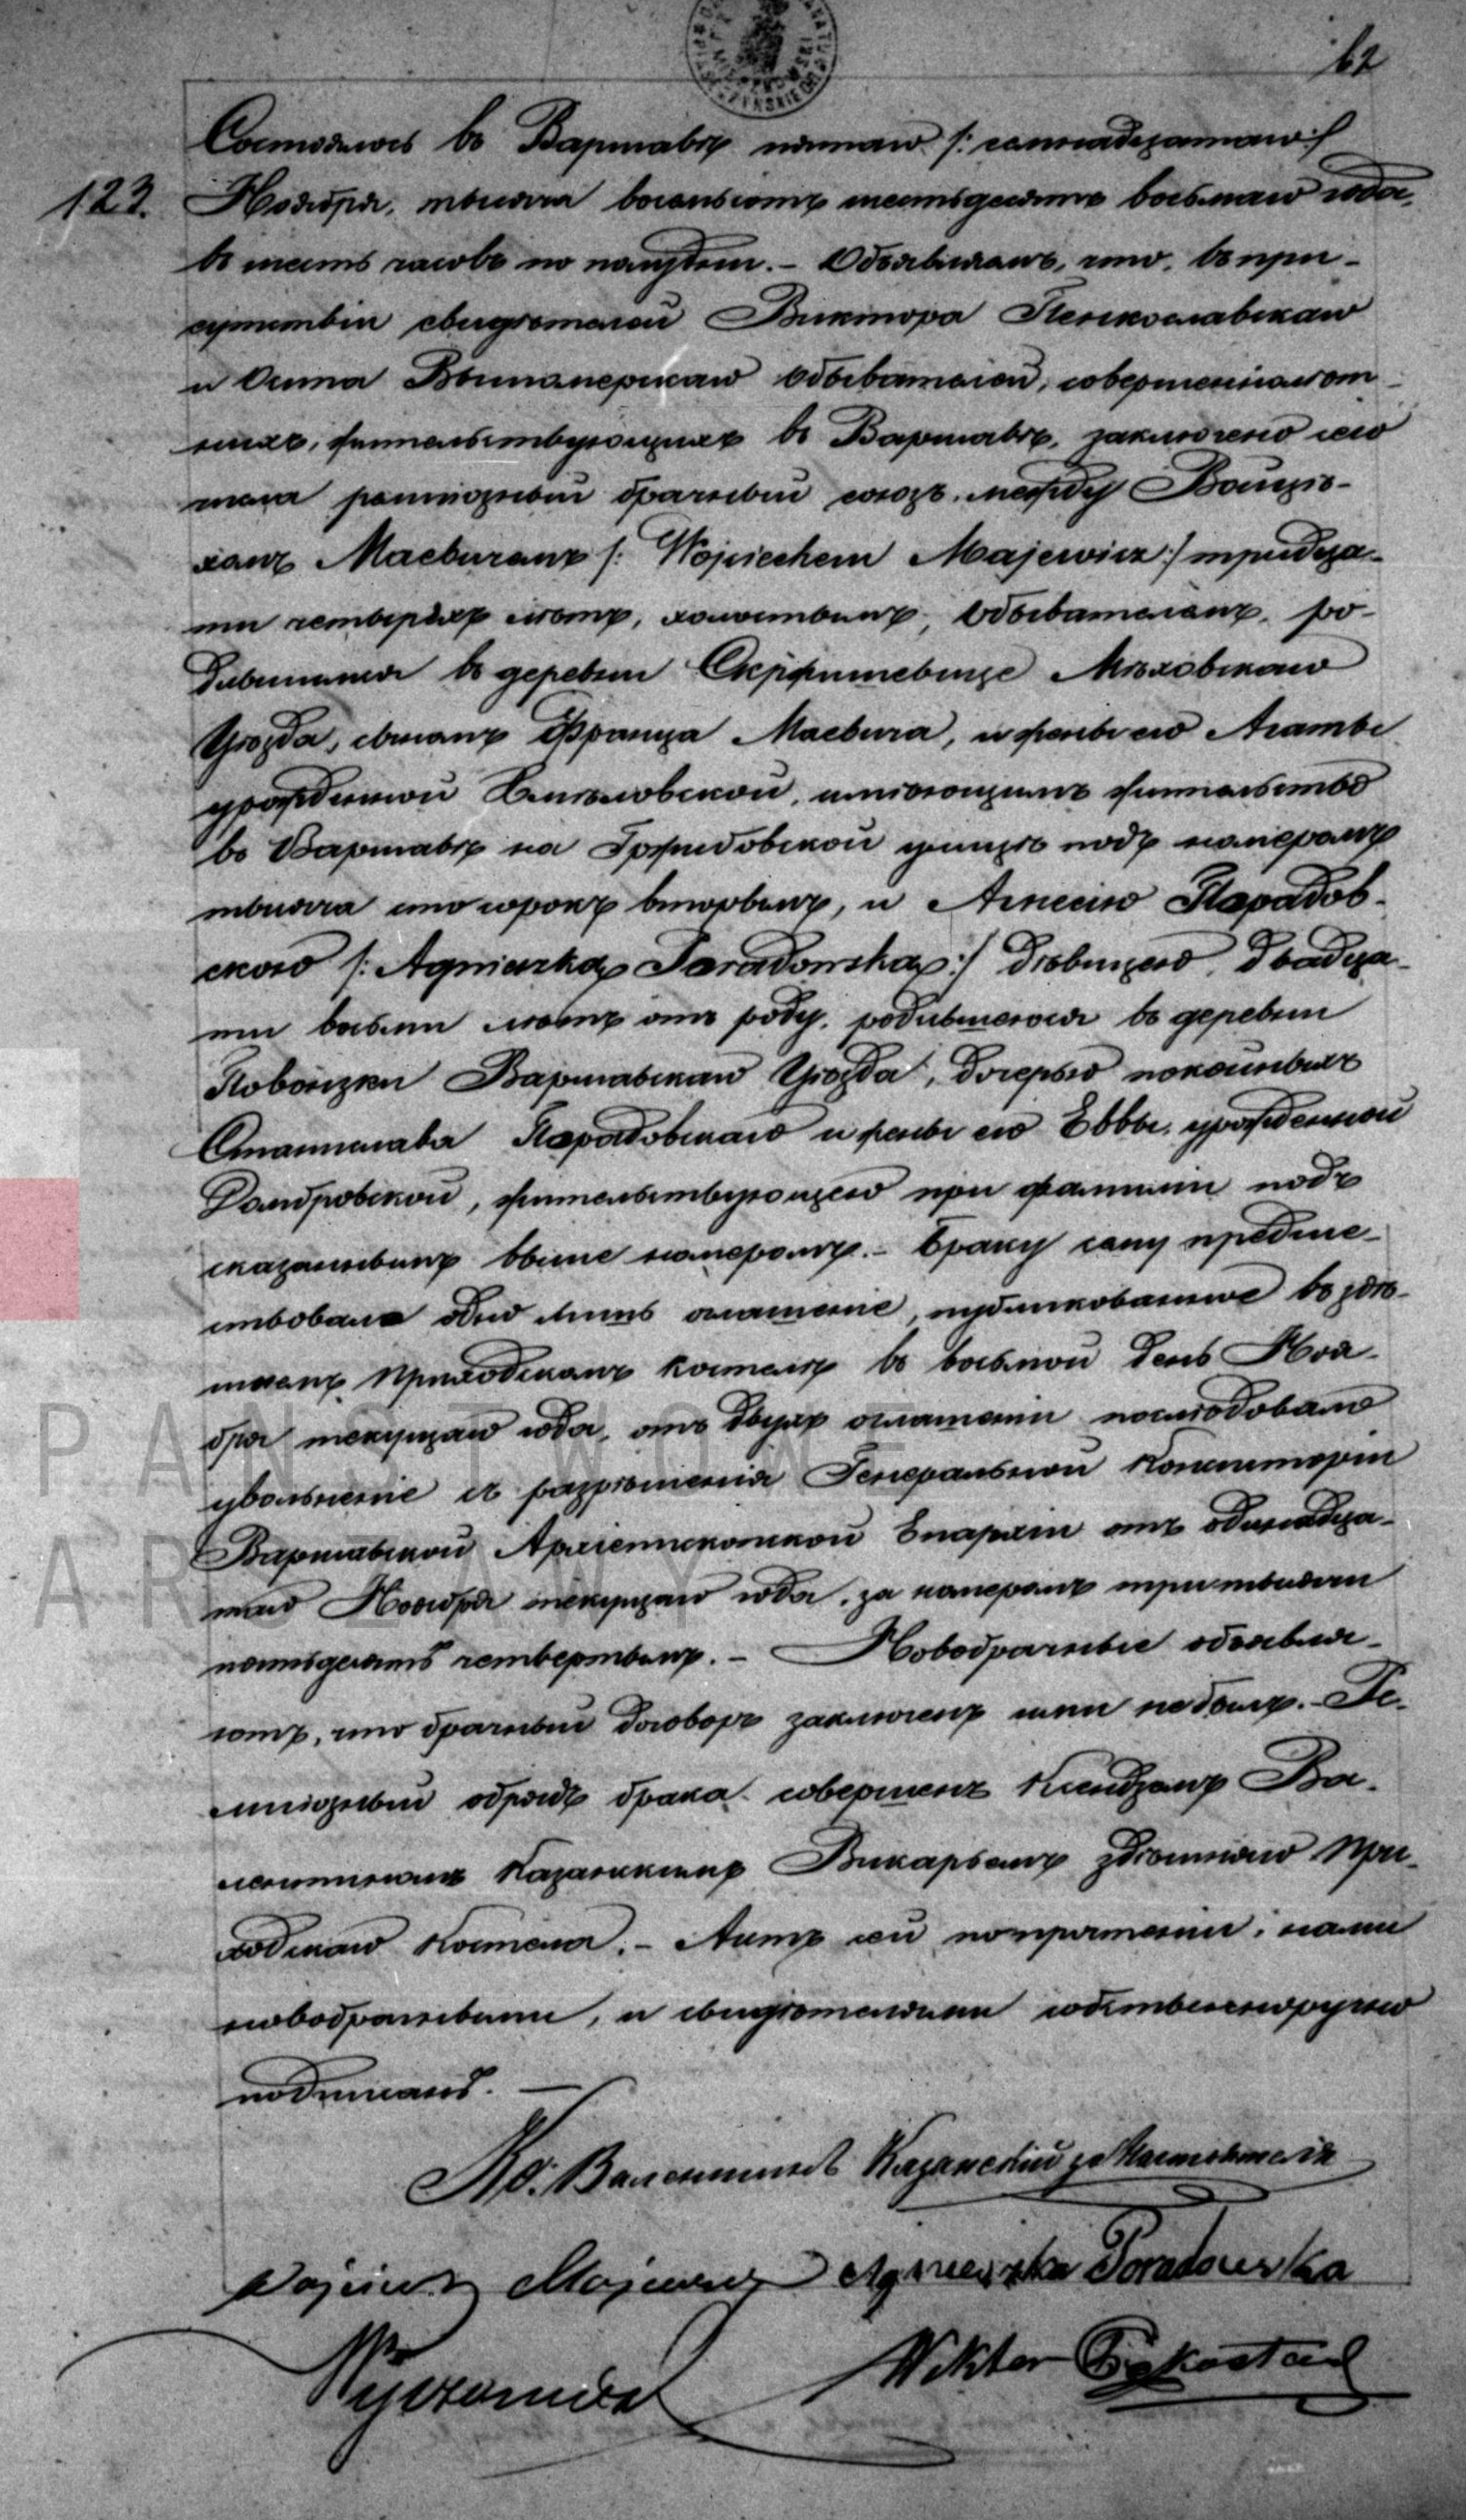 62
Состоялось въ Варшавѣ пятаго /: семнадцатаго :/
123. Ноября, тысяча восемьсотъ шестьдесятъ восьмаго года,
въ шесть часовъ по полудни. – Объявляемъ, что, въ при-
сутствіи свидѣтелей Виктора
и Осипа Обывателей, совершеннолѣт-
нихъ, жительствующихъ въ Варшавѣ, заключенъ сего
числа религіозный брачный союзъ между Войцѣ-
хомъ Маевичемъ /: Wojciechem Majewicz :/ тридца-
ти четырехъ лѣтъ, холостымъ, Обывателемъ, ро-
дившимся въ деревни Мѣховскаго
Уѣзда, сыномъ Франца Маевича, и жены его Агаты
урожденной имѣющимъ жительство
въ Варшавѣ на Гржибовской улицѣ подъ номеромъ
тысяча сто сорокъ вторымъ, и Агнесою Парадов-
скою /: Agnieszką Paradowską :/ дѣвицею, двадца-
ти восьми лѣтъ отъ роду, родившеюся въ деревни
Повонзки Варшавскаго Уѣзда, дочерью покойныхъ
Станислава Парадовскаго и жены его Еввы, урожденной
Домбровской, жительствующею при фамиліи подъ
сказаннымъ выше номеромъ. – Браку сему предше-
ствовало одно лишь оглашеніе, публикованное въ здѣ-
шнемъ Приходскомъ Костелѣ въ восьмой день Ноя-
бря текущаго года, отъ двухъ оглашеній послѣдовало
увольненіе съ разрѣшенія Генеральной Консисторіи
Варшавской Архіепископской Епархіи отъ одиннадца-
таго Ноября текущаго года, за номеромъ три тысячи
пятьдесятъ четвертымъ. – Новобрачные объявля-
ютъ, что брачный договоръ заключенъ ими не былъ. – Ре-
лигіозный обрядъ брака совершенъ Ксендзомъ Ва-
лентинымъ Казанскимъ Викарьемъ здѣшняго При-
ходскаго Костела. – Актъ сей, по прочтеніи, нами
новобрачными, и свидѣтелями собственноручно
подписанъ. —
Кс. Валентинъ Казанскій
Wojciech Majewicz Agnieszka Poradowska
Wiktor